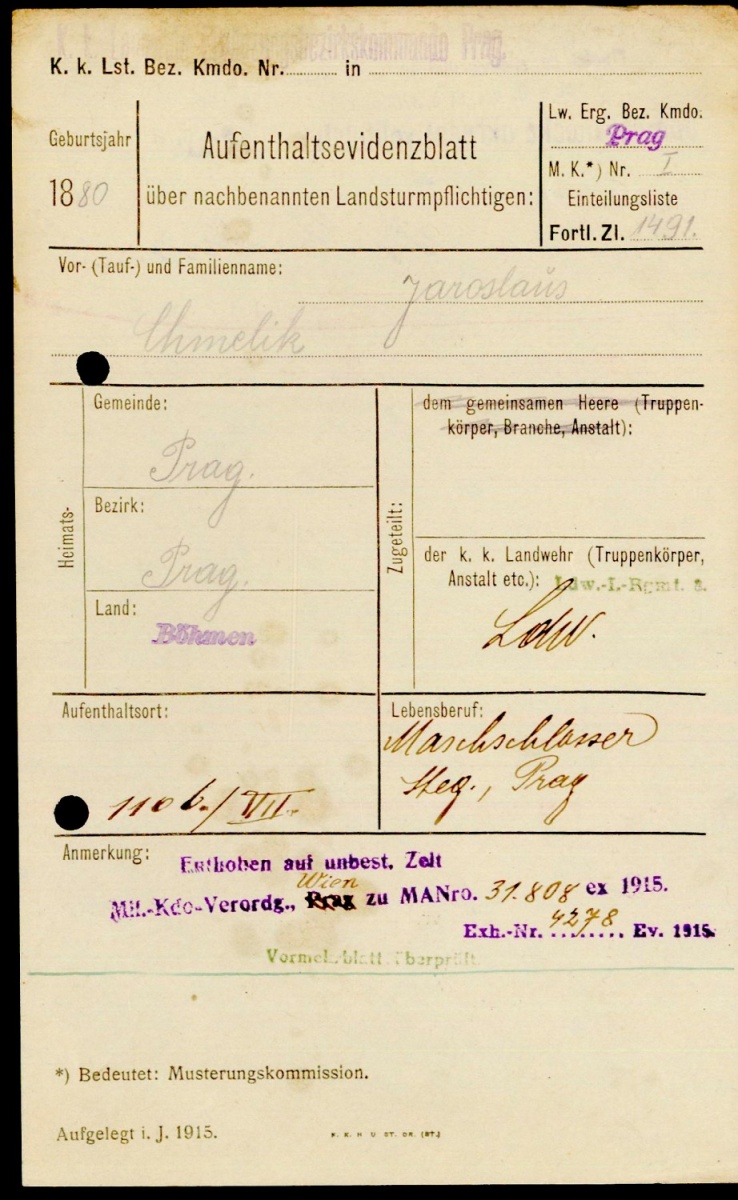 K. k. Lst. Bez. Kmdo. Nr. in
Geburtsjahr
1880
Aufenthaltsevidenzblatt
über nachbenannten Landsturmpflichtigen:
Lw. Erg. Bez. Kmdo.
Prag
M. K.*) Nr. I
Einteilungsliste
Fortl. Zl. 1491.
Vor- (Tauf-) und Familienname:
Jaroslaus
Chmelik
Heimats-
Gemeinde:
Prag.
Bezirk:
Prag.
Land:
Böhmen
Zugeteilt:
dem gemeinsamen Heere (Truppen-
körper, Branche, Anstalt):
der k. k. Landwehr (Truppenkörper,
Anstalt etc.): Ldw.-I.-Rgmt. 8.
Ldw.
Aufenthaltsort:
1106./VII.
Lebensberuf:
Maschschlosser
Prag
Anmerkung:
Enthoben auf unbest. Zeit
Wien
Mil.-Kdo-Verordg., Prag zu MANro. 31.808 ex 1915.
Exh.-Nr. 4278 Ev. 1915.
Vormerkblatt überprüft.
*) Bedeutet: Musterungskommission.
Aufgelegt i. J. 1915.